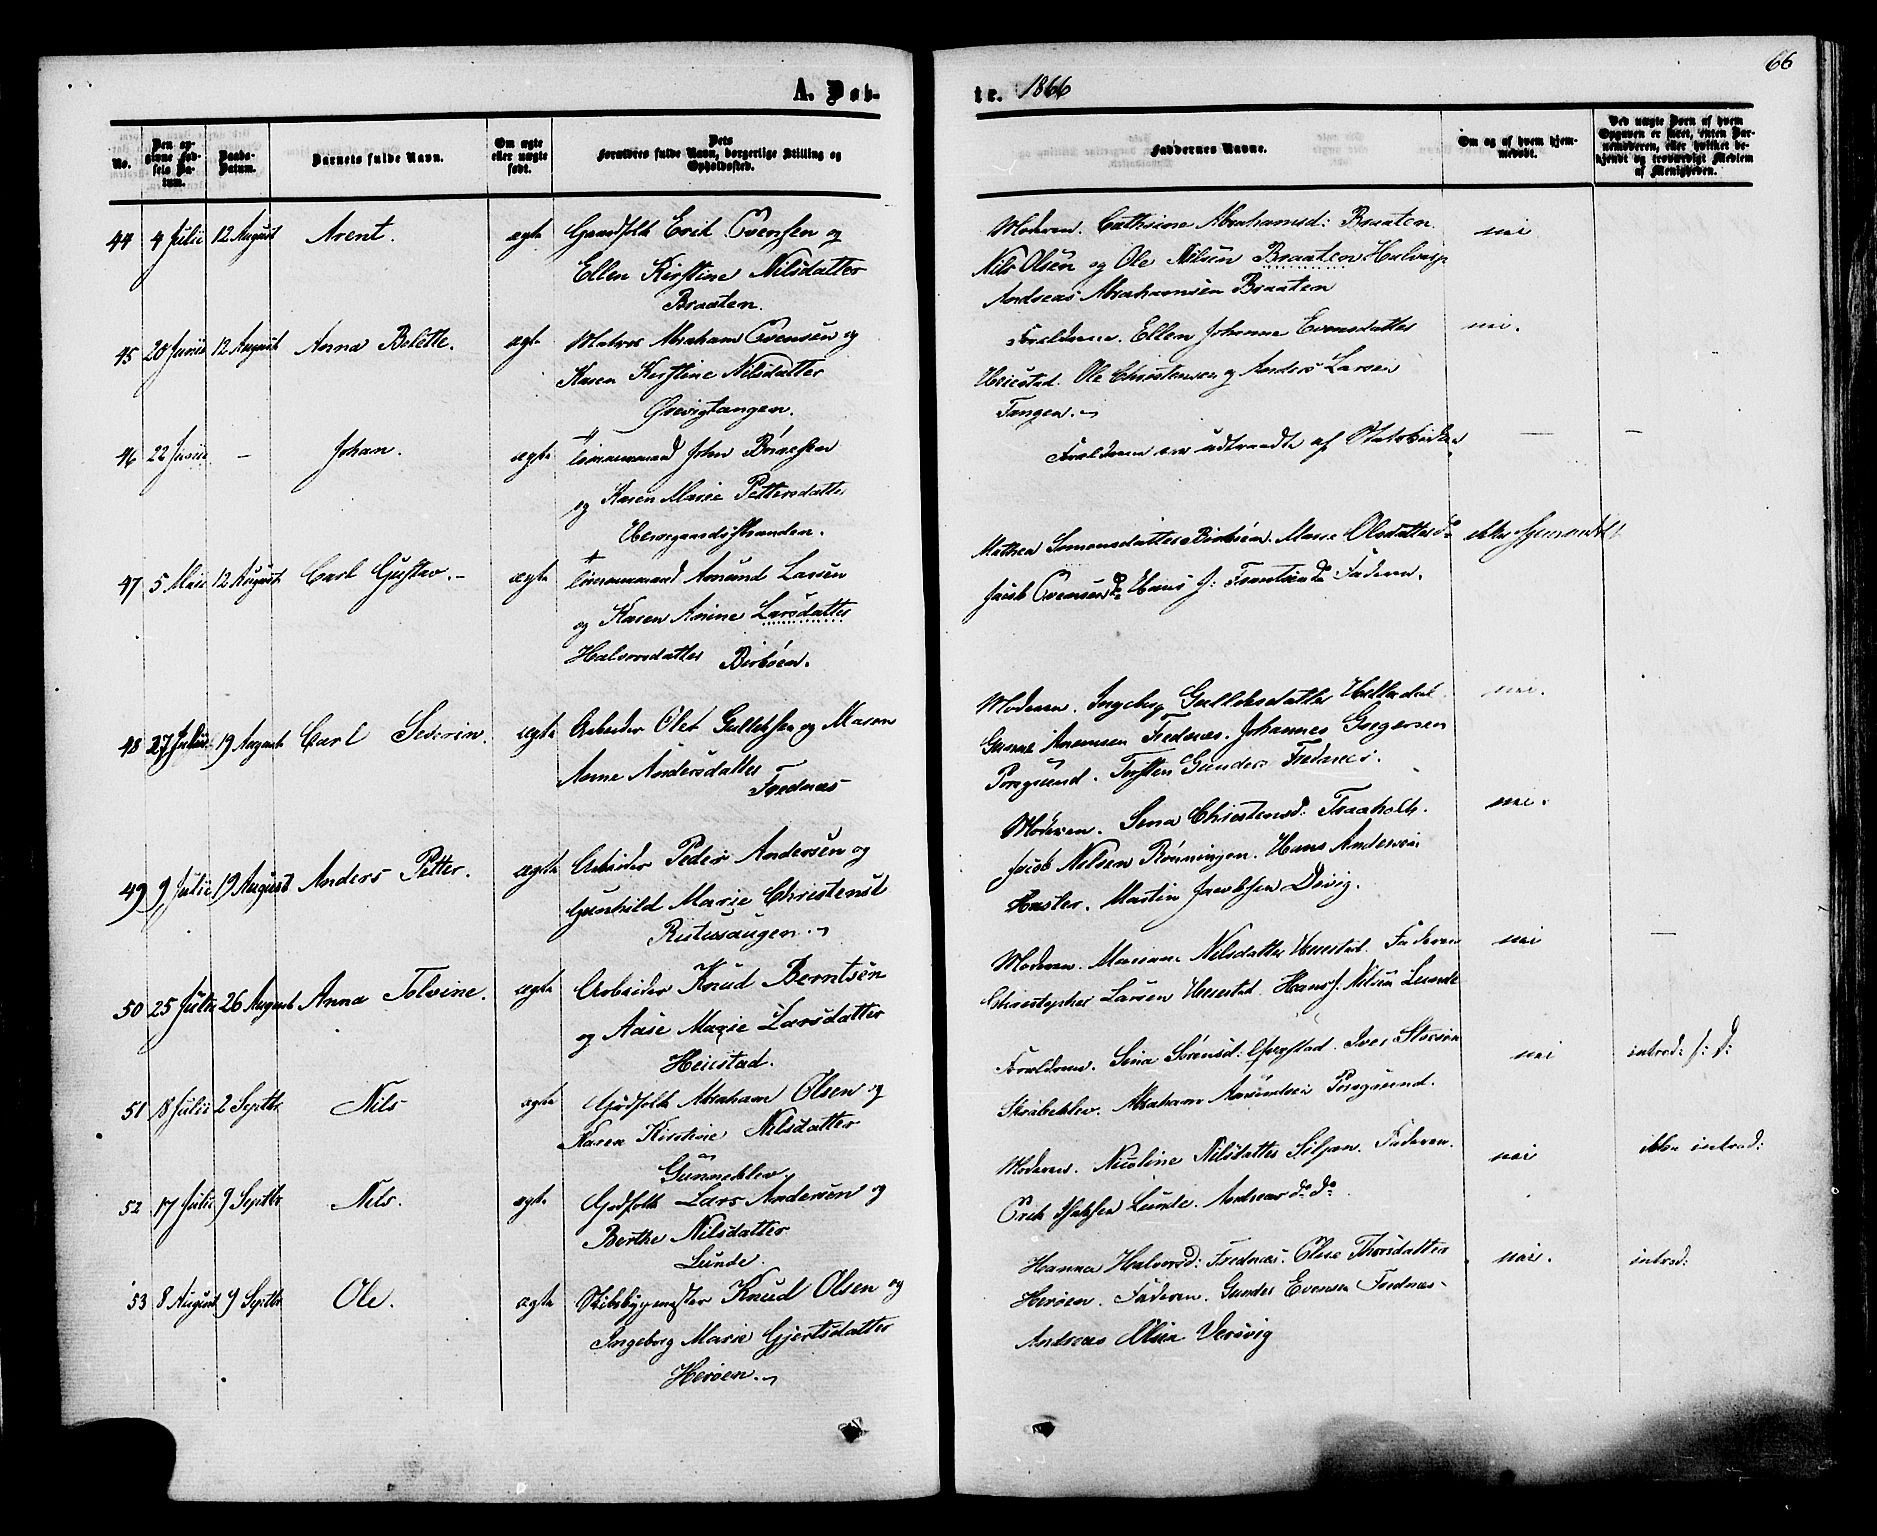 66
A. Døb-
te. 1866
No.
Den op-
givne Fød-
sels Da-
tum.
Daabs-
Datum.
Barnets fulde Navn.
Om ægte
eller uægte
født.
Dets
Forældres fulde Navn, borgerlige Stilling og
Opholdssted.
Faddernes Navne.
Om og af hvem hjem-
medøbt.
Ved uægte Børn af hvem
Opgaven er skeet, enten Bar-
nemoderen, eller hvilket be-
kjendt og troværdigt Medlem
af Menigheden.
44 4 Julii 12 August Arent. ægte Gaardfolk Erik Evensen og
Ellen Kirstine Nilsdatter
Braaten.
Moderen. Cathrine Abrahamsd: Braaten. nei
Nils Olsen og Ole Nilsen Braaten
Andreas Abrahamsen Braaten
45 20 Junii 12 August Anna Bolette. ægte Matros Abraham Evensen og
Karen Kirstine Nilsdatter
Ørvigtangen.
Forældrene. Ellen Johanne Evensdatter nei.
Heiestad. Ole Christensen og Anders Larsen
Tangen.
46 22 Junii. – Johan. ægte John
og Karen Marie Pettersdatter
Forældrene ere udtraadte af Statskirken — –
47 5 Maii 12 August Carl Gustav. – ægte Amund Larsen
og Karen Anine Larsdatter
Halvorsdatter Birköen.
Mathea Simonsdatter Birköen. Marie Olsdatter do ikke hjemmedøbt
Jacob Evensen do Hans J: Frantsen do Faderen.
48 27 Julii 19 August Carl Severin. ægte Arbeider Olet Gulleksen og Maren
Anne Andersdatter
Frednæs
Moderen. Ingeborg Gulleksdatter nei.
Frednæs. Johannes Gregersen
Porsgrund. Torsten Gunders Frednæs.
49 9 Julii 19 August Anders Petter. ægte Arbeider Peder Andersen og
Gunhild Marie Christensd
Moderen. Sena Christensd: Traaholt. nei.
Jacob Nilsen Rønningen. Hans Andersen
Hasler. Martin Jacobsen Devig.
50 25 Julii 26 August Anna Tolvine. ægte Arbeider Knud Berntsen
og Aase Marie Larsdatter
Heiestad.
Moderen. Mariane Nilsdatter Heiestad. Faderen nei —
Christopher Larsen Heiestad. Hans J. Nilsen Lunde
51 18 Julii 2 Septbr. Nils ægte Gaardfolk Abraham Olsen og
Karen Kirstine Nilsdatter
Gunneklev.
Forældrene. Sena Sørensd: Iver nei introd: f: D:
Skrabeklev. Abraham Amundsen Porsgrund.
52 17 Julii 9 Septbr Nils. ægte Gaardfolk Lars Andersen og
Berthe Nilsdatter
Lunde.
Moderen. Nicoline Nilsdatter Siljan. Faderen. nei ikke introd:
Erik Lunde. Andreas do do
53 8 August 9 Septbr Ole. ægte Skibsbygmester Knud Olsen og
Ingeborg Marie Gjertsdatter
Herøen.
Hanna Halvorsd: Frednæs. Olise Thorsdatter nei. introd:
Herøen. Faderen. Gunder Evensen Frednæs.
Andreas Olsen Versvig